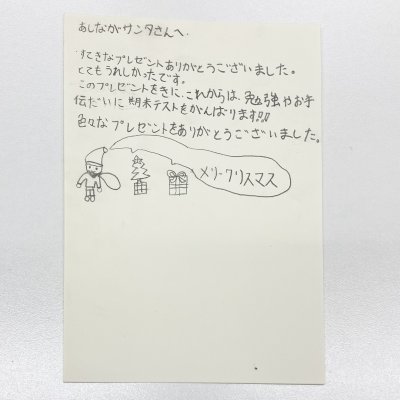 あしながサンタさんへ.
すてきなプレゼントありがとうございました。
とてもうれしかったです。
このプレゼントをきに、これからは、勉強やお手
伝だいに期末テストをがんばります!!!
色々なプレゼントをありがとうございました。
メリークリスマス